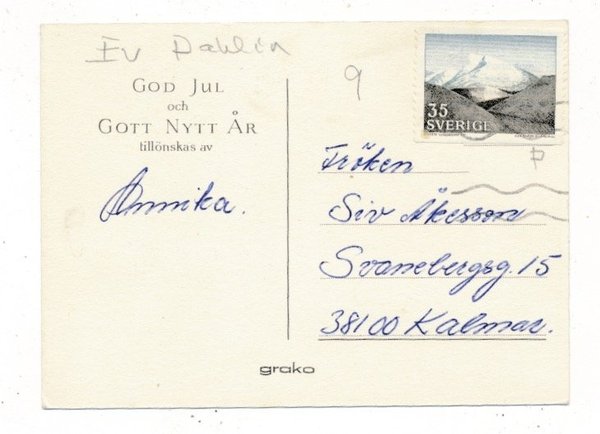 Ev Dahlin
GOD JUL
och
GOTT NYTT ÅR
tillönskas av
Annika.
9
35
SVERIGE
Fröken
Siv Åkesson
Svanebergsg. 15
38100 Kalmar.
grako